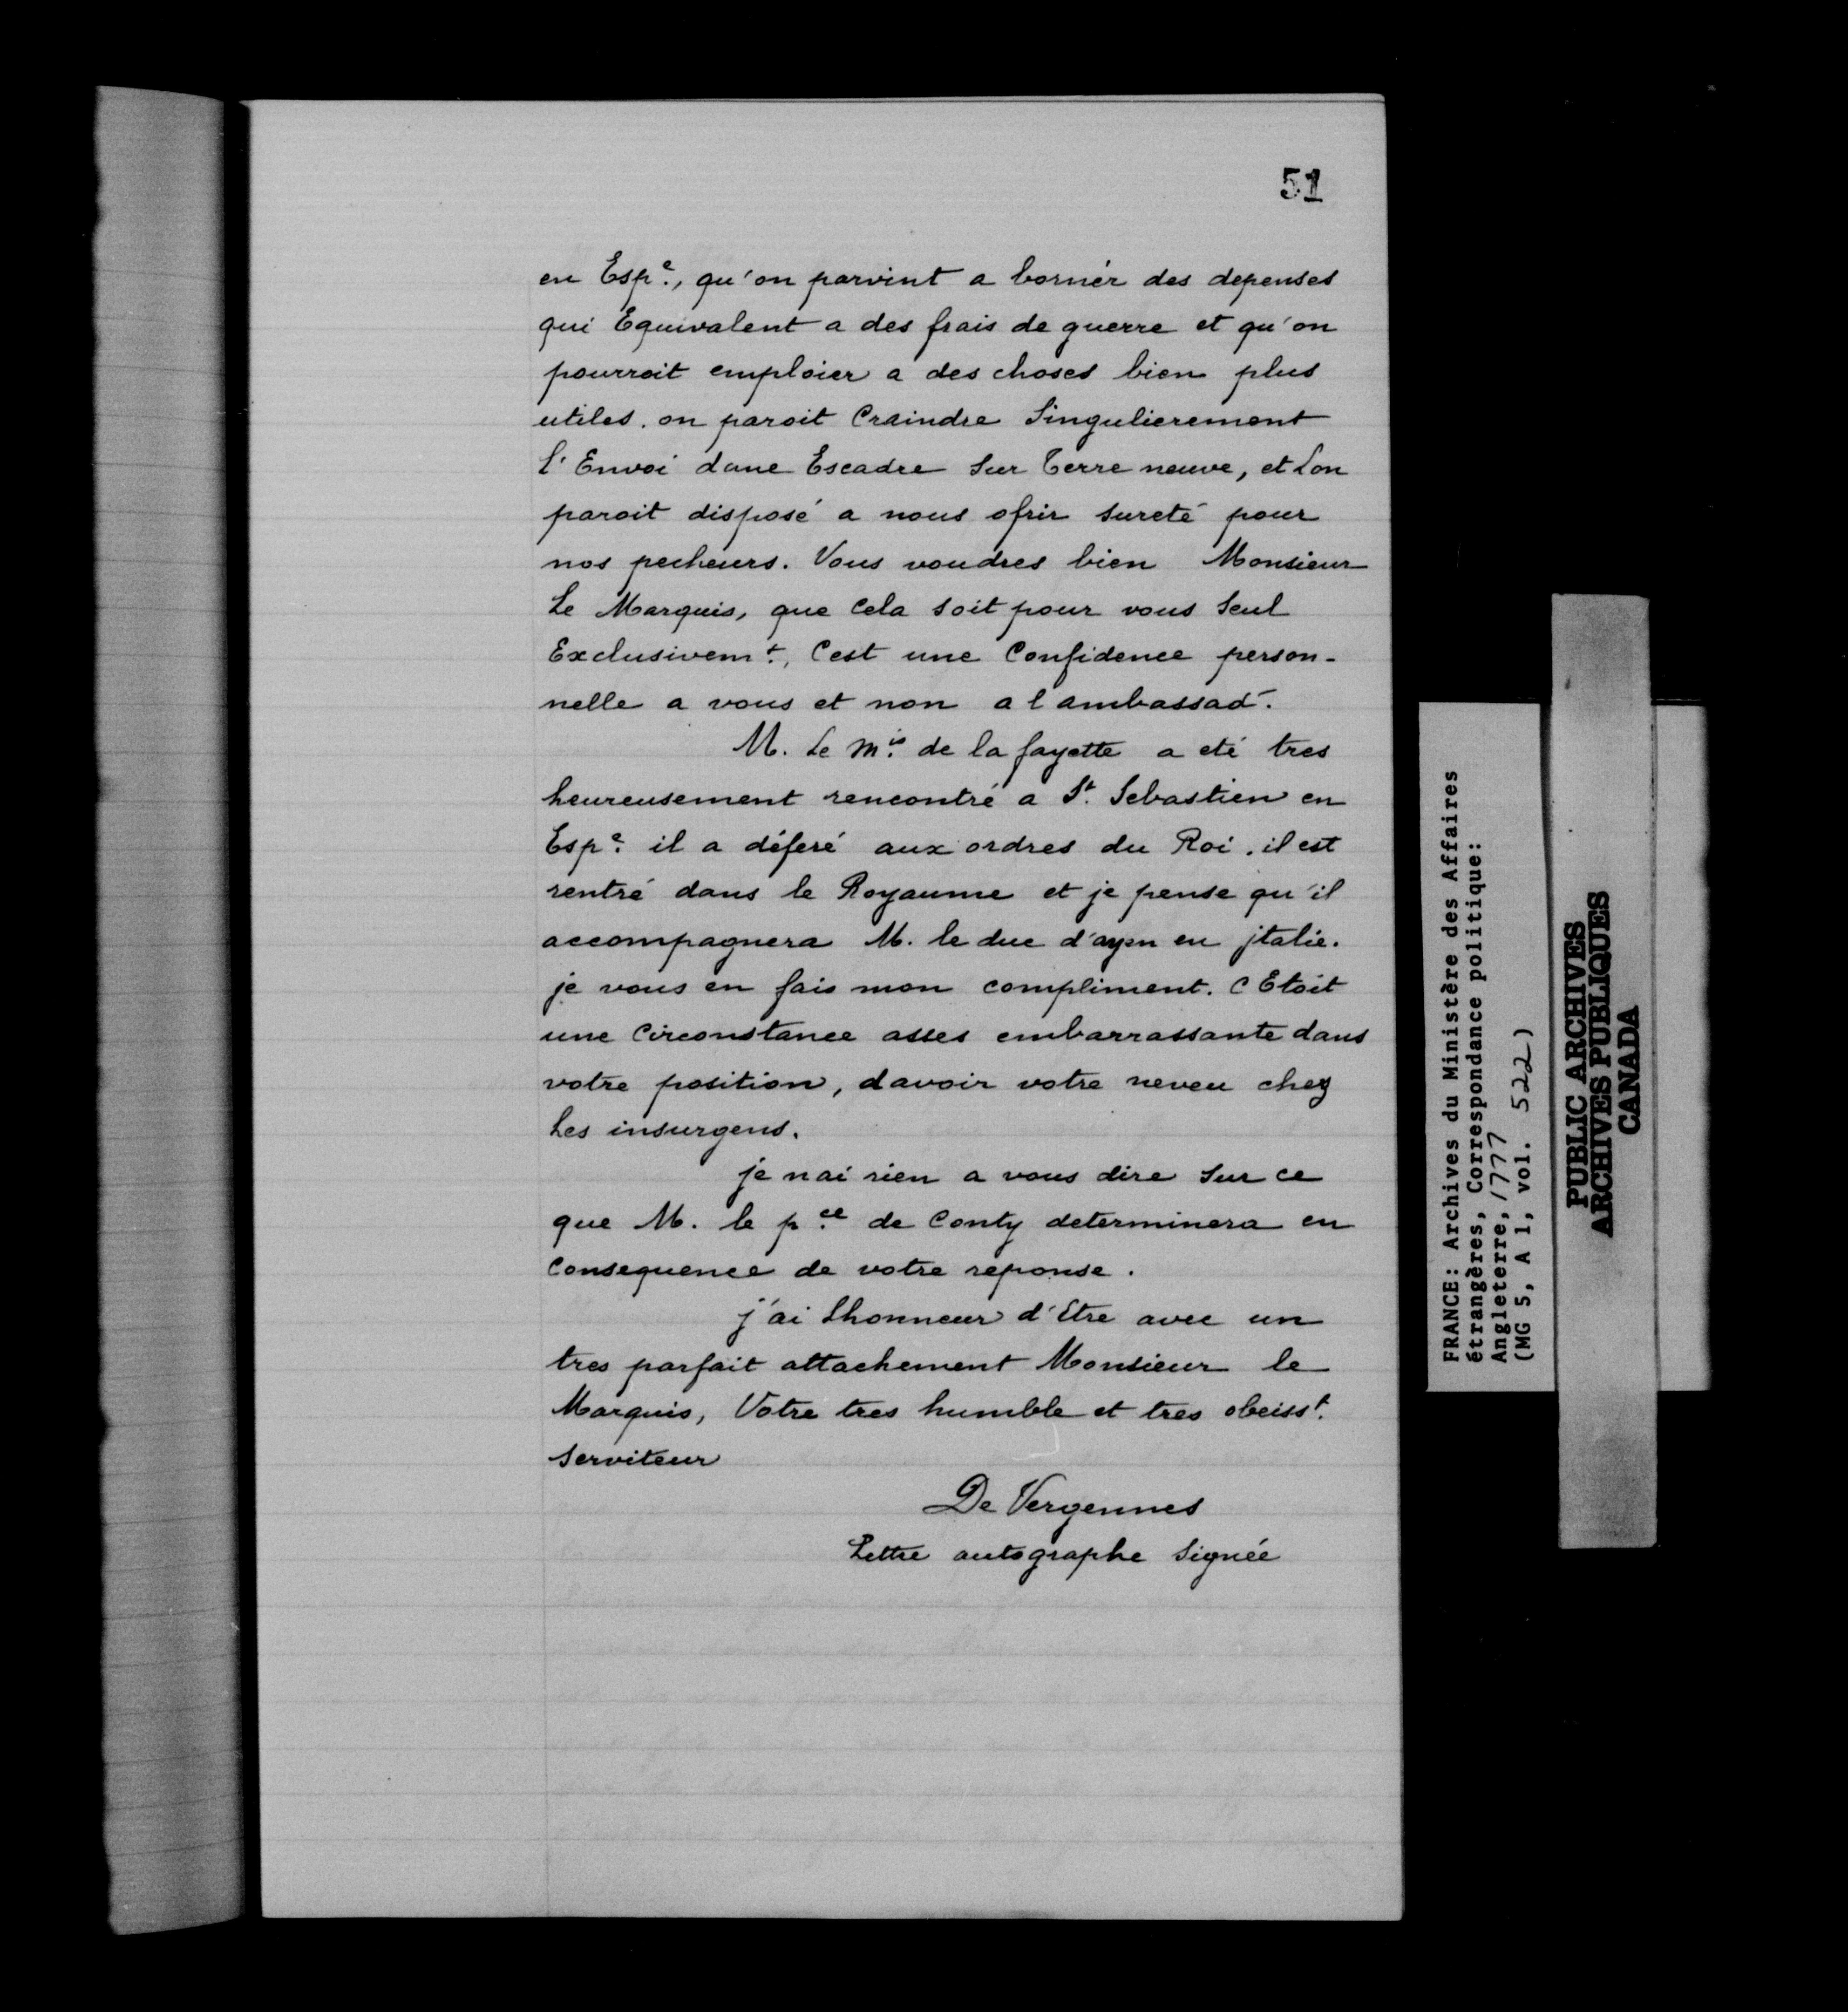 51
en Esp.e, qu'on parvint a bornér des depenses
qui Equivalent a des frais de guerre et qu'on
pourroit emploier a des choses bien plus
utiles. on paroit Craindre Singulierement
l'Envoi dune Escadre Sur Terre neuve, et Lon
paroit disposé a nous ofrir sureté pour
nos pecheurs. Vous voudres bien Monsieur
Le Marquis, que Cela soit pour vous Seul
Exclusivem.t, Cest une Confidence person-
nelle a vous et non a l'ambassad.r
M. Le m.is de la fayette a eté tres
heureusement rencontré a S.t Sebastien en
Esp.e il a déferé aux ordres du Roi. il est
rentré dans le Royaume et je pense qu'il
accompagnera M. le duc d'ayen en jtalie.
je vous en fais mon compliment. C Etoit
une Circonstance asses embarrassante dans
votre position, davoir votre neveu chez
Les insurgens.
je nai rien a vous dire Sur ce
que M. le p.ce de Conty determinera en
Consequence de votre reponse.
j'ai Lhonneur d'Etre avec un
tres parfait attachement Monsieur le
Marquis, Votre tres humble et tres obeiss.t
Serviteur
De Vergennes
Lettre autographe Signée
FRANCE: Archives du Ministère des Affaires
étrangères, Correspondance politique:
Angleterre, 1777
(MG 5, A 1, vol. 522)
PUBLIC ARCHIVES
ARCHIVES PUBLIQUES
CANADA